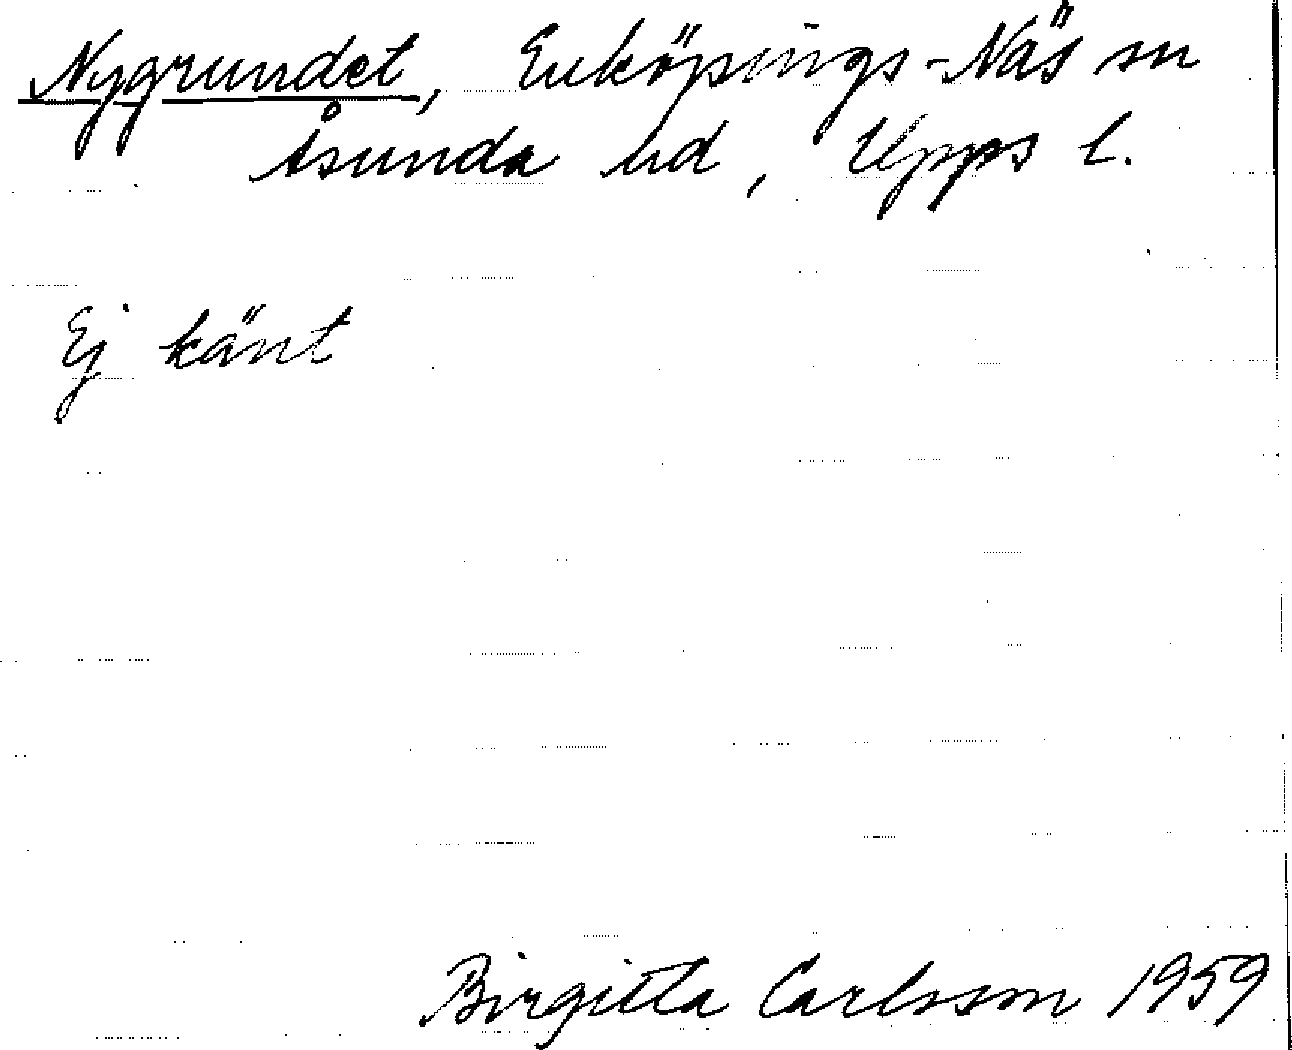 Nygrundet, Enköpings-Näs sn
Åsunda hd, Upps l.
Ej känt
Birgitta Carlsson 1959